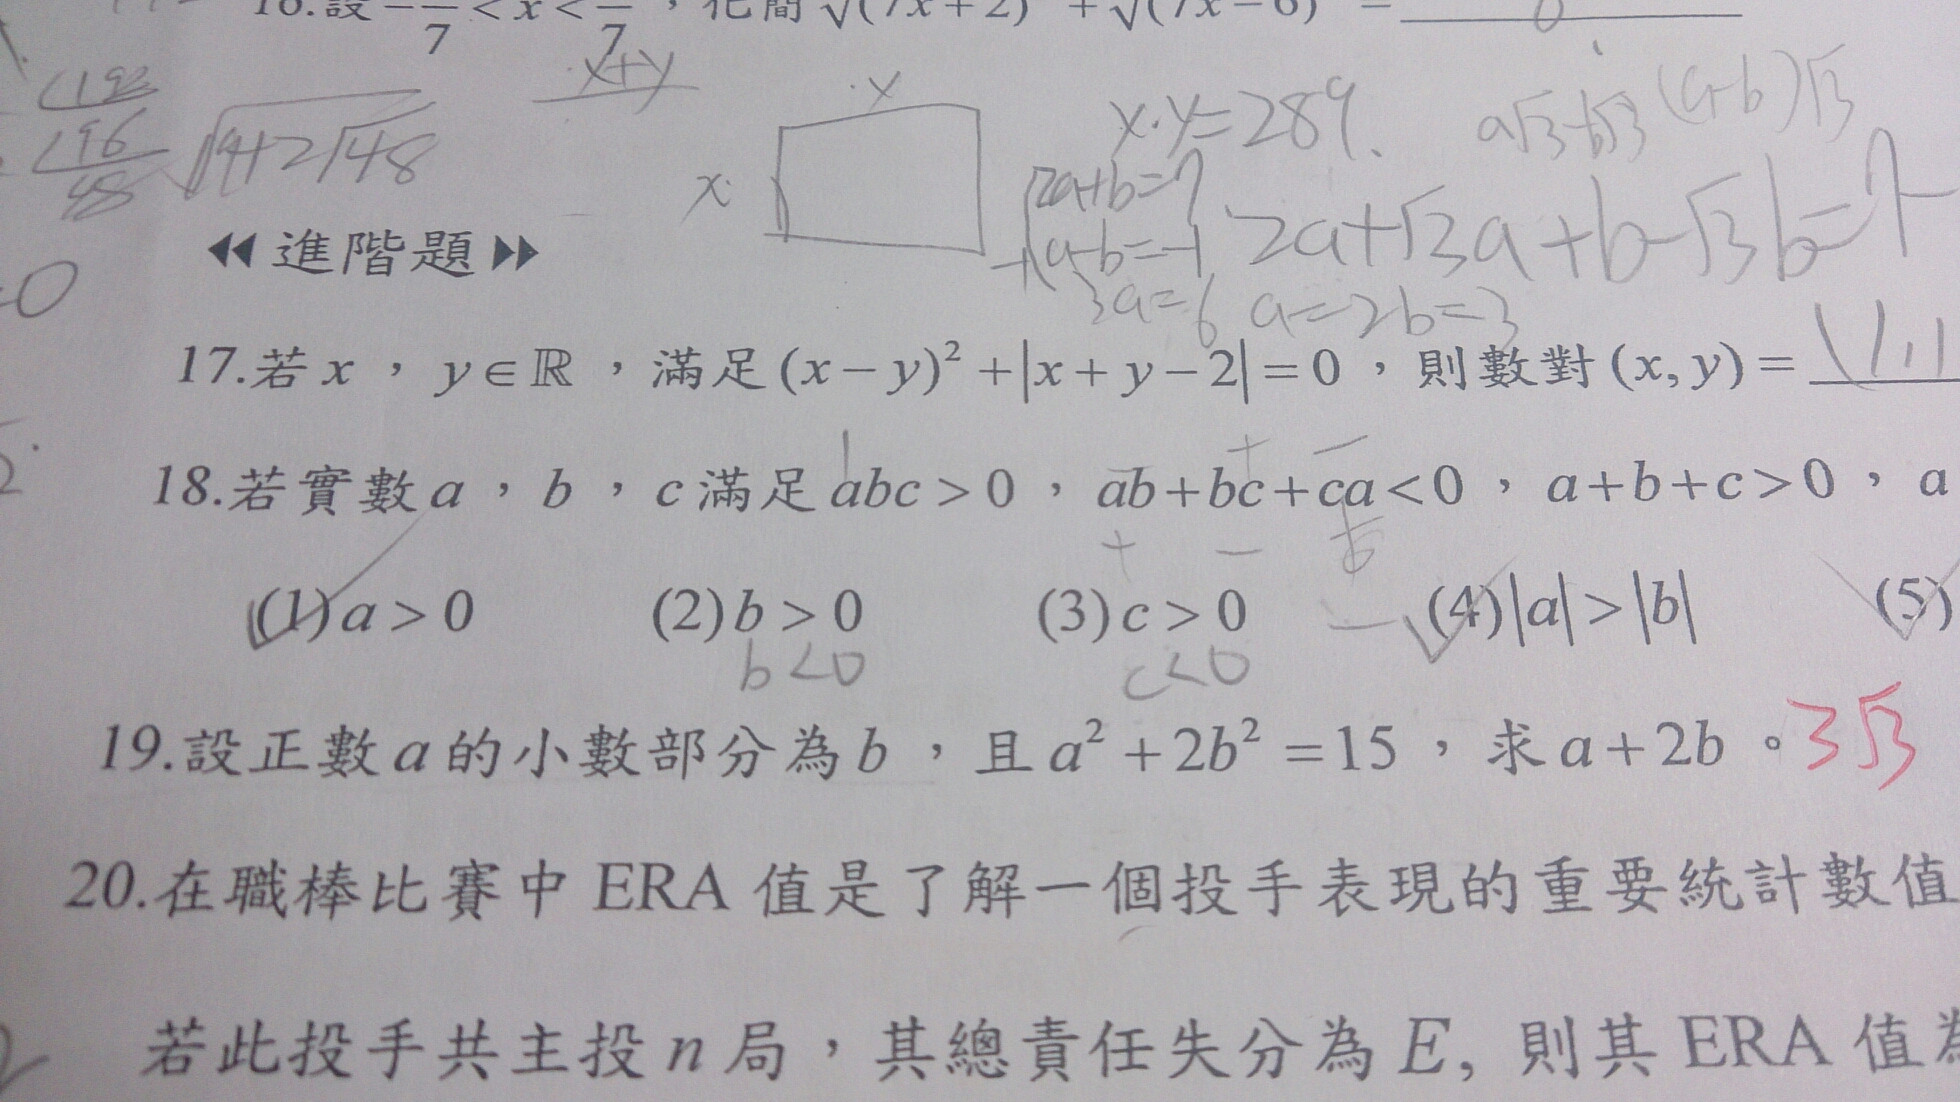 16.設 −_/7 < x < _/7，化簡 √(7x+2) + √(7x−6) = 0
<192
<96
48
√4+2√48
x+y
x
x
x·y=289.
a√3-b√3 (a-b)√3
2a+b=7
+ a-b=-1
3a=6
2a+√3a+b-√3b=7-
a=2 b=3
◀◀ 進階題 ▶▶
17.若 x ， y∈ℝ ，滿足 (x−y)²+|x+y−2|=0 ，則數對 (x, y) = (1,1
18.若實數 a ， b ， c 滿足 abc>0 ， ab+bc+ca<0 ， a+b+c>0 ， a
(1) a>0 (2) b>0 (3) c>0 (4) |a|>|b| (5)
b<0 c<0
19.設正數 a 的小數部分為 b ，且 a²+2b²=15 ，求 a+2b 。 3√3
20.在職棒比賽中 ERA 值是了解一個投手表現的重要統計數值
若此投手共主投 n 局，其總責任失分為 E, 則其 ERA 值為